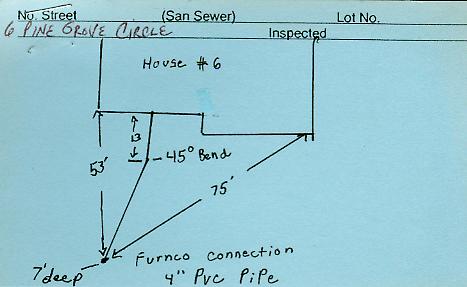 No. Street (San Sewer) Lot No.
6 PINE GROVE CIRCLE Inspected
House #6
13
45° Bend
53'
75'
Furnco Connection
7' deep
4" PVC PiPe